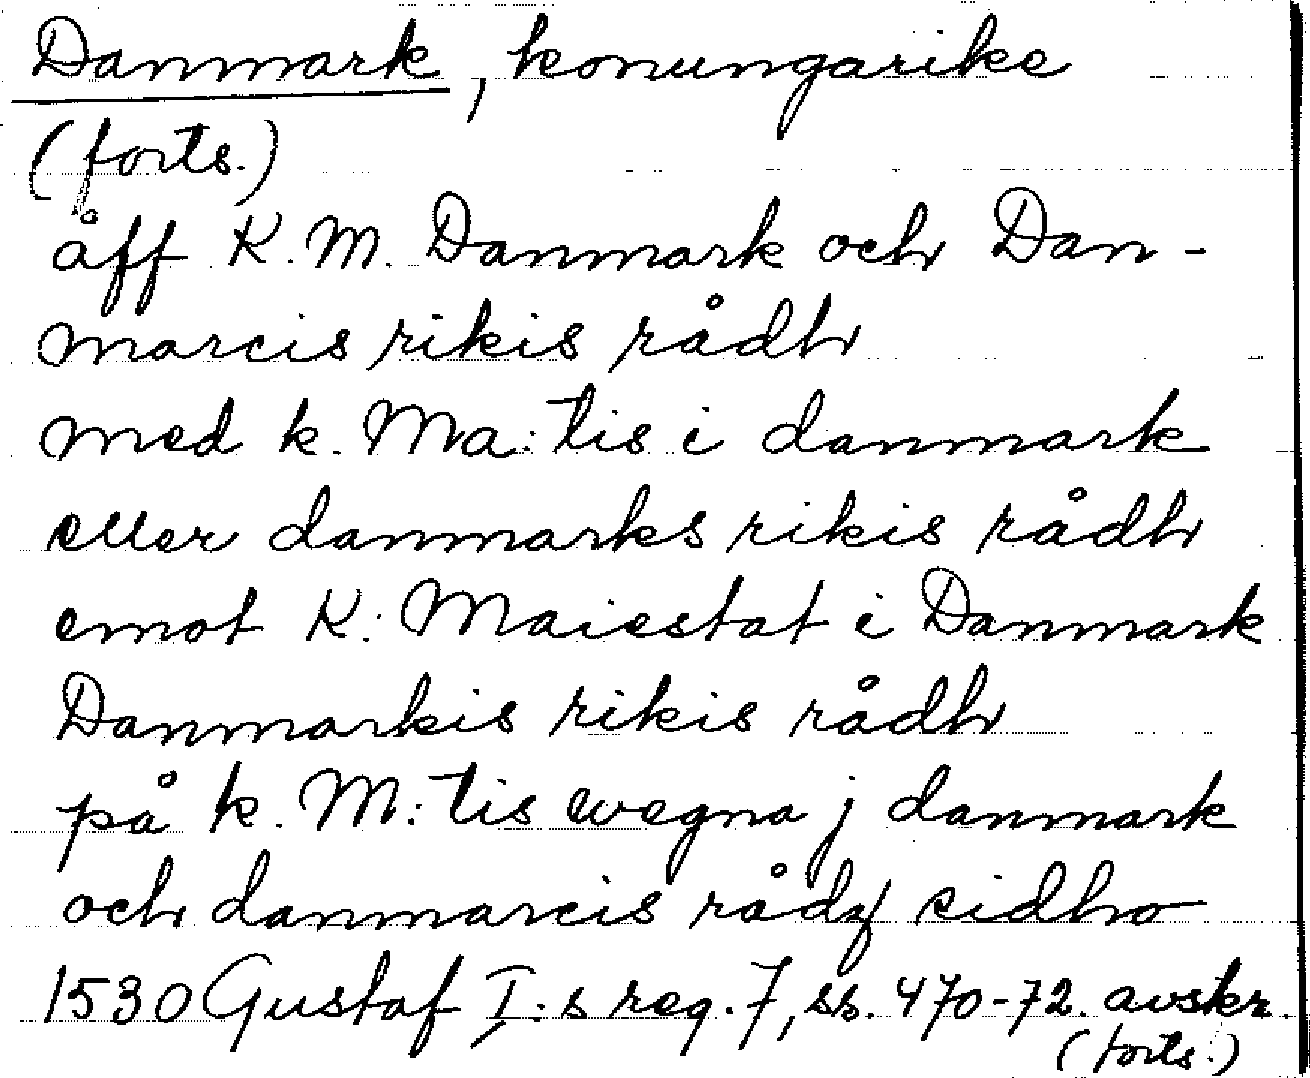 Danmark, konungarike
(forts.)
åff K. M. Danmark och Dan-
marcis rikis rådh
med k. Ma: tis i danmark
eller danmarks rikis rådh
emot K: Maiestat i Danmark
Danmarkis rikis rådh
på k. M: tis wegna j danmark
och danmarcis rådz sidho
1530 Gustaf I:s reg. 7, ss. 470-72. avskr.
(forts.)